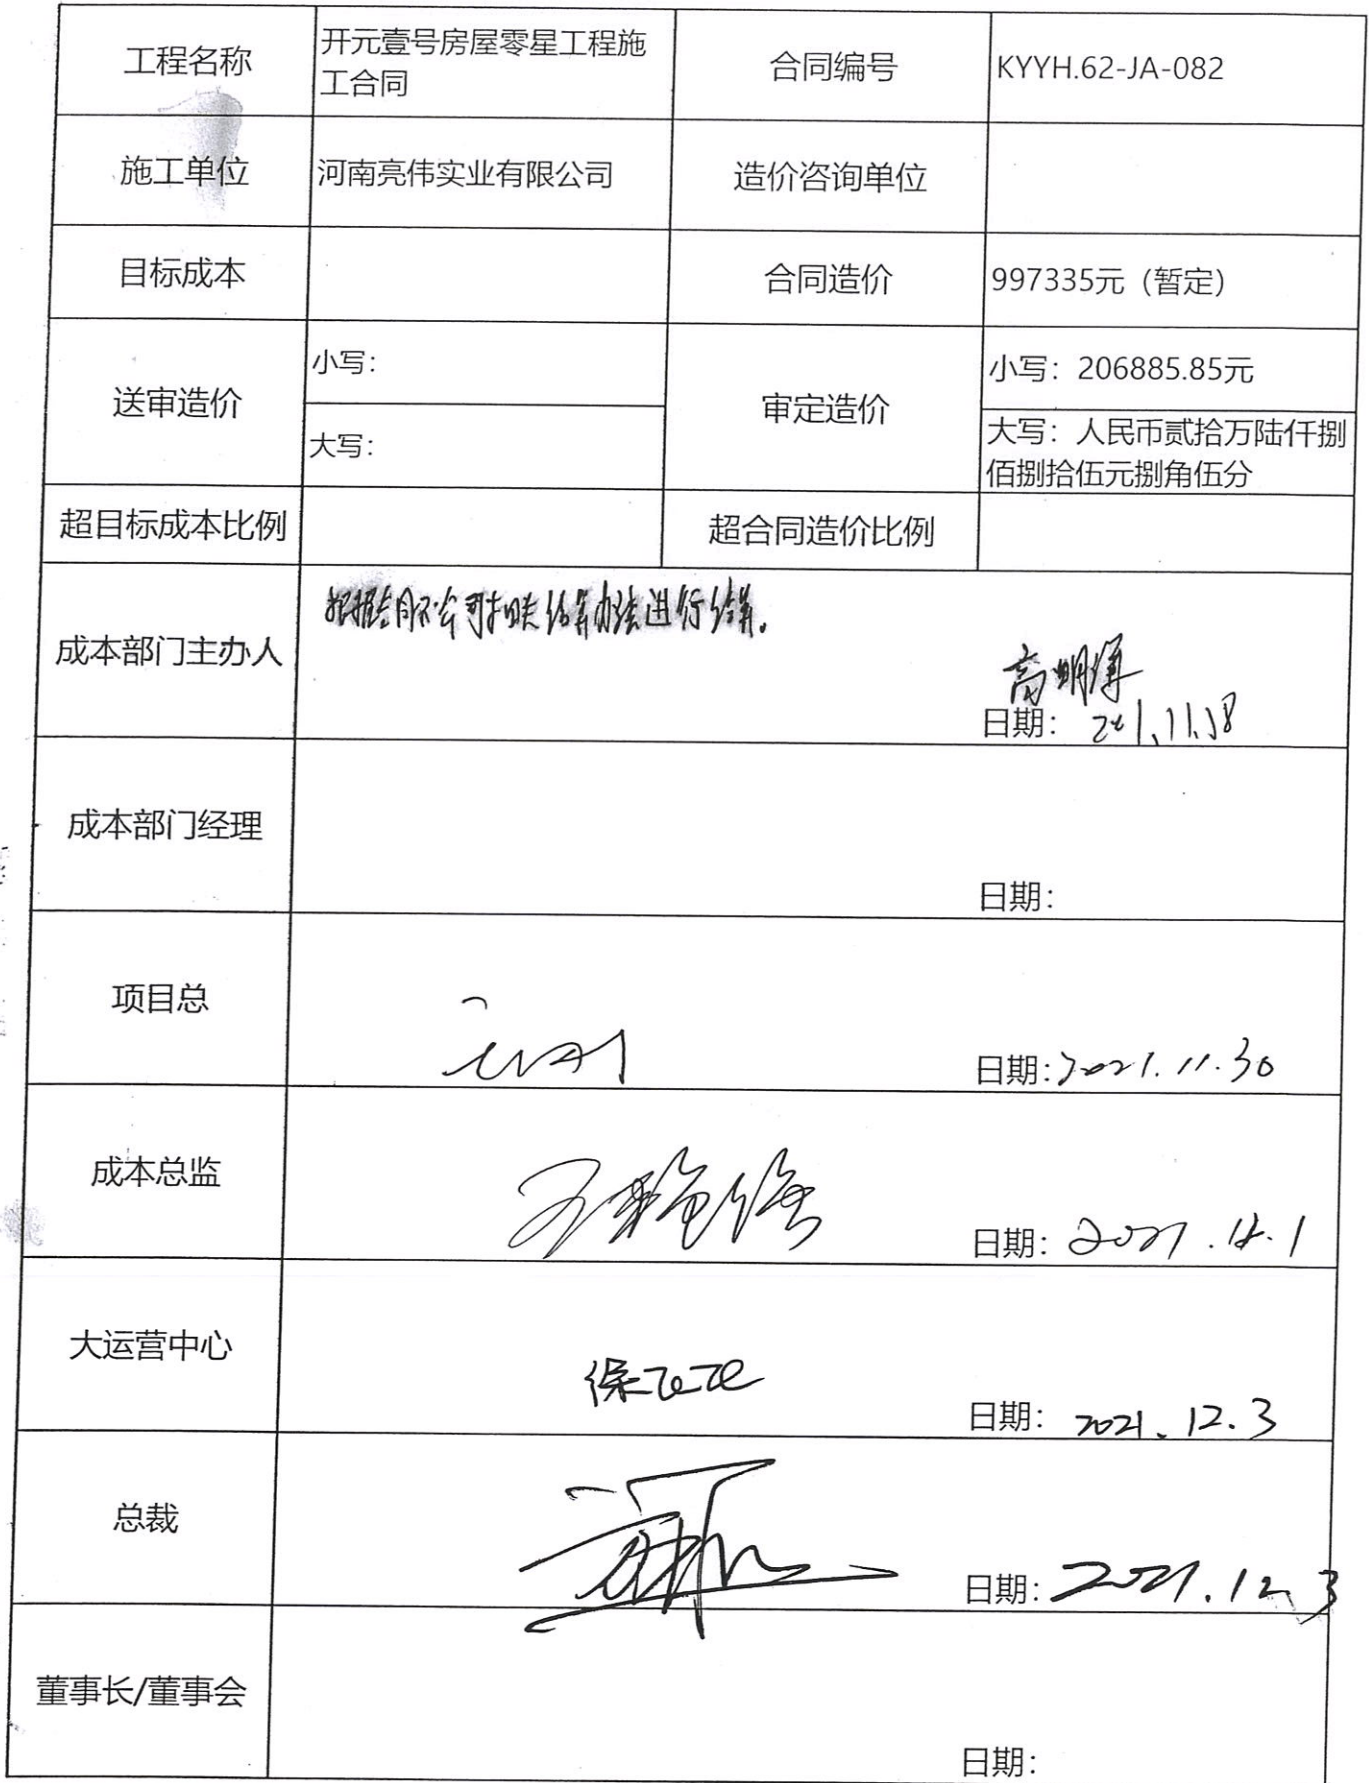 工程名称
开元壹号房屋零星工程施
工合同
合同编号
KYYH.62-JA-082
施工单位
河南亮伟实业有限公司
造价咨询单位
目标成本
合同造价
997335元（暂定）
送审造价
小写：
大写：
审定造价
小写：206885.85元
大写：人民币贰拾万陆仟捌
佰捌拾伍元捌角伍分
超目标成本比例
超合同造价比例
成本部门主办人
结算办法进行结算。
日期：2021.11.18
成本部门经理
日期：
项目总
日期：2021.11.30
成本总监
日期：2021.12.1
大运营中心
日期：2021.12.3
总裁
日期：2021.12.3
董事长/董事会
日期：